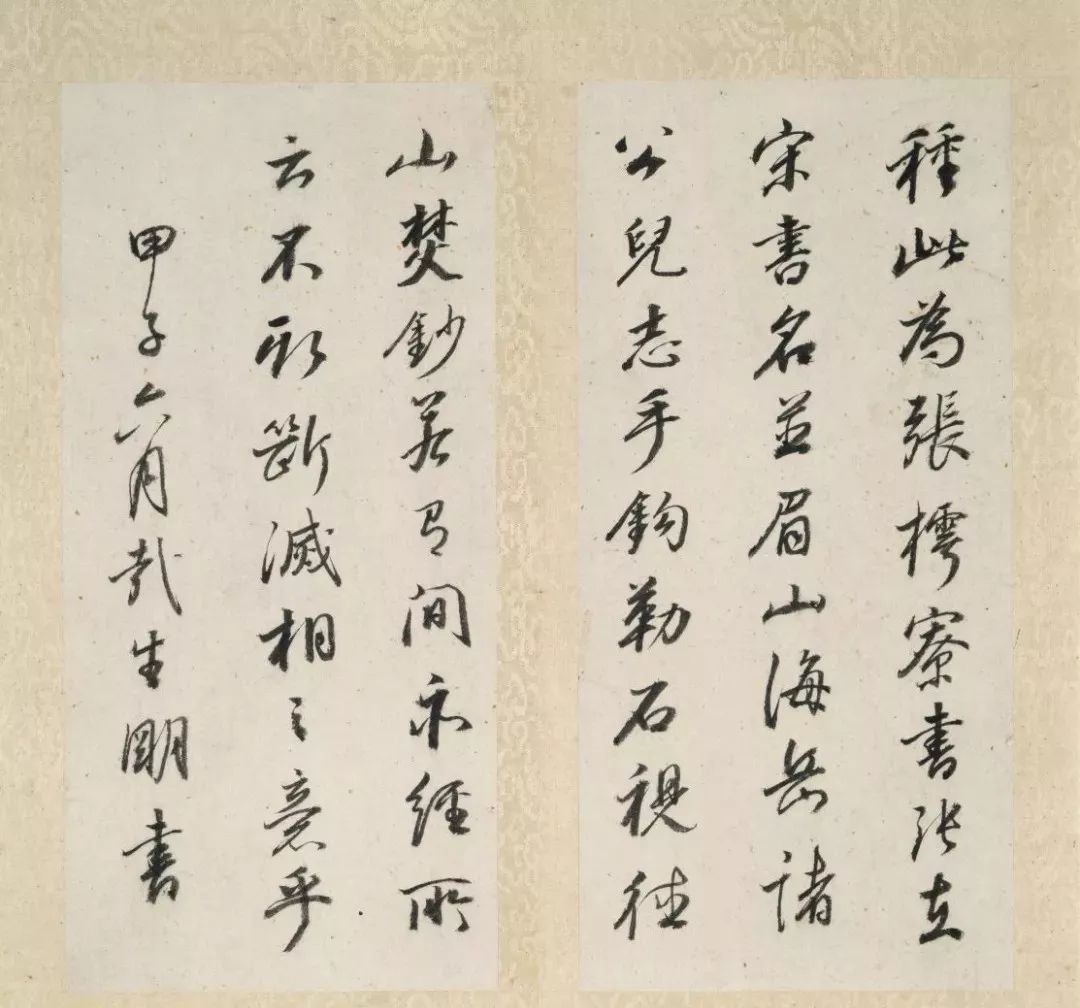 種此為張樗寮書張在
宋書名並眉山海岳諸
公兒志手鈎勒石視德
山焚鈔若有間亦經所
云不取斷滅相之意乎
甲子六月哉生明書